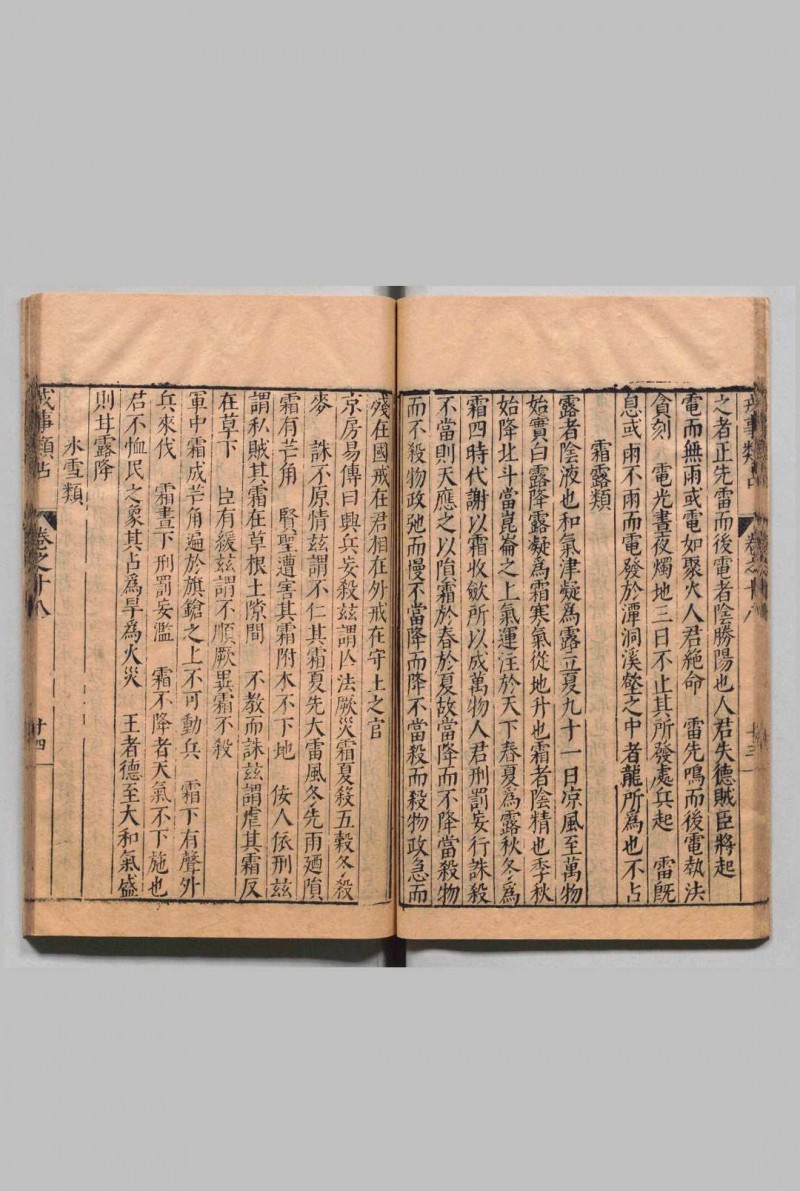 戎事類占 卷之十八 廿三
之者正先雷而後電者陰勝陽也人君失德賊臣將起
電而無雨或電如聚火人君絶命 雷先鳴而後電執法
貪刻 電光晝夜燭地三日不止其所發處兵起 雷旣
息或雨不雨而電發於潭洞溪壑之中者龍所爲也不占
霜露類
露者陰液也和氣津凝爲露立夏九十一日凉風至萬物
始實白露降露凝爲霜寒氣從地升也霜者陰精也季秋
始降北斗當崑崙之上氣運注於天下春夏爲露秋冬爲
霜四時代謝以霜收斂所以成萬物人君刑罰妄行誅殺
不當則天應之以隕霜於春於夏故當降而不降當殺物
而不殺物政弛而慢不當降而降不當殺而殺物政急而
殘在國戒在君相在外戒在守土之官
京房易傳曰興兵妄殺玆謂亾法厥災霜夏殺五穀冬殺
麥 誅不原情玆謂不仁其霜夏先大雷風冬先雨廼隕
霜有芒角 賢聖遭害其霜附木不下地 佞人依刑玆
謂私賊其霜在草根土隙間 不教而誅玆謂虐其霜反
在草下 臣有緩玆謂不順厥異霜不殺
軍中霜成芒角遍於旗鎗之上不可動兵 霜下有聲外
兵來伐 霜晝下刑罰妄濫 霜不降者天氣不下施也
君不恤民之象其占爲旱爲火災 王者德至大和氣盛
則甘露降
氷雪類
戎事類占 卷之十八 廿四